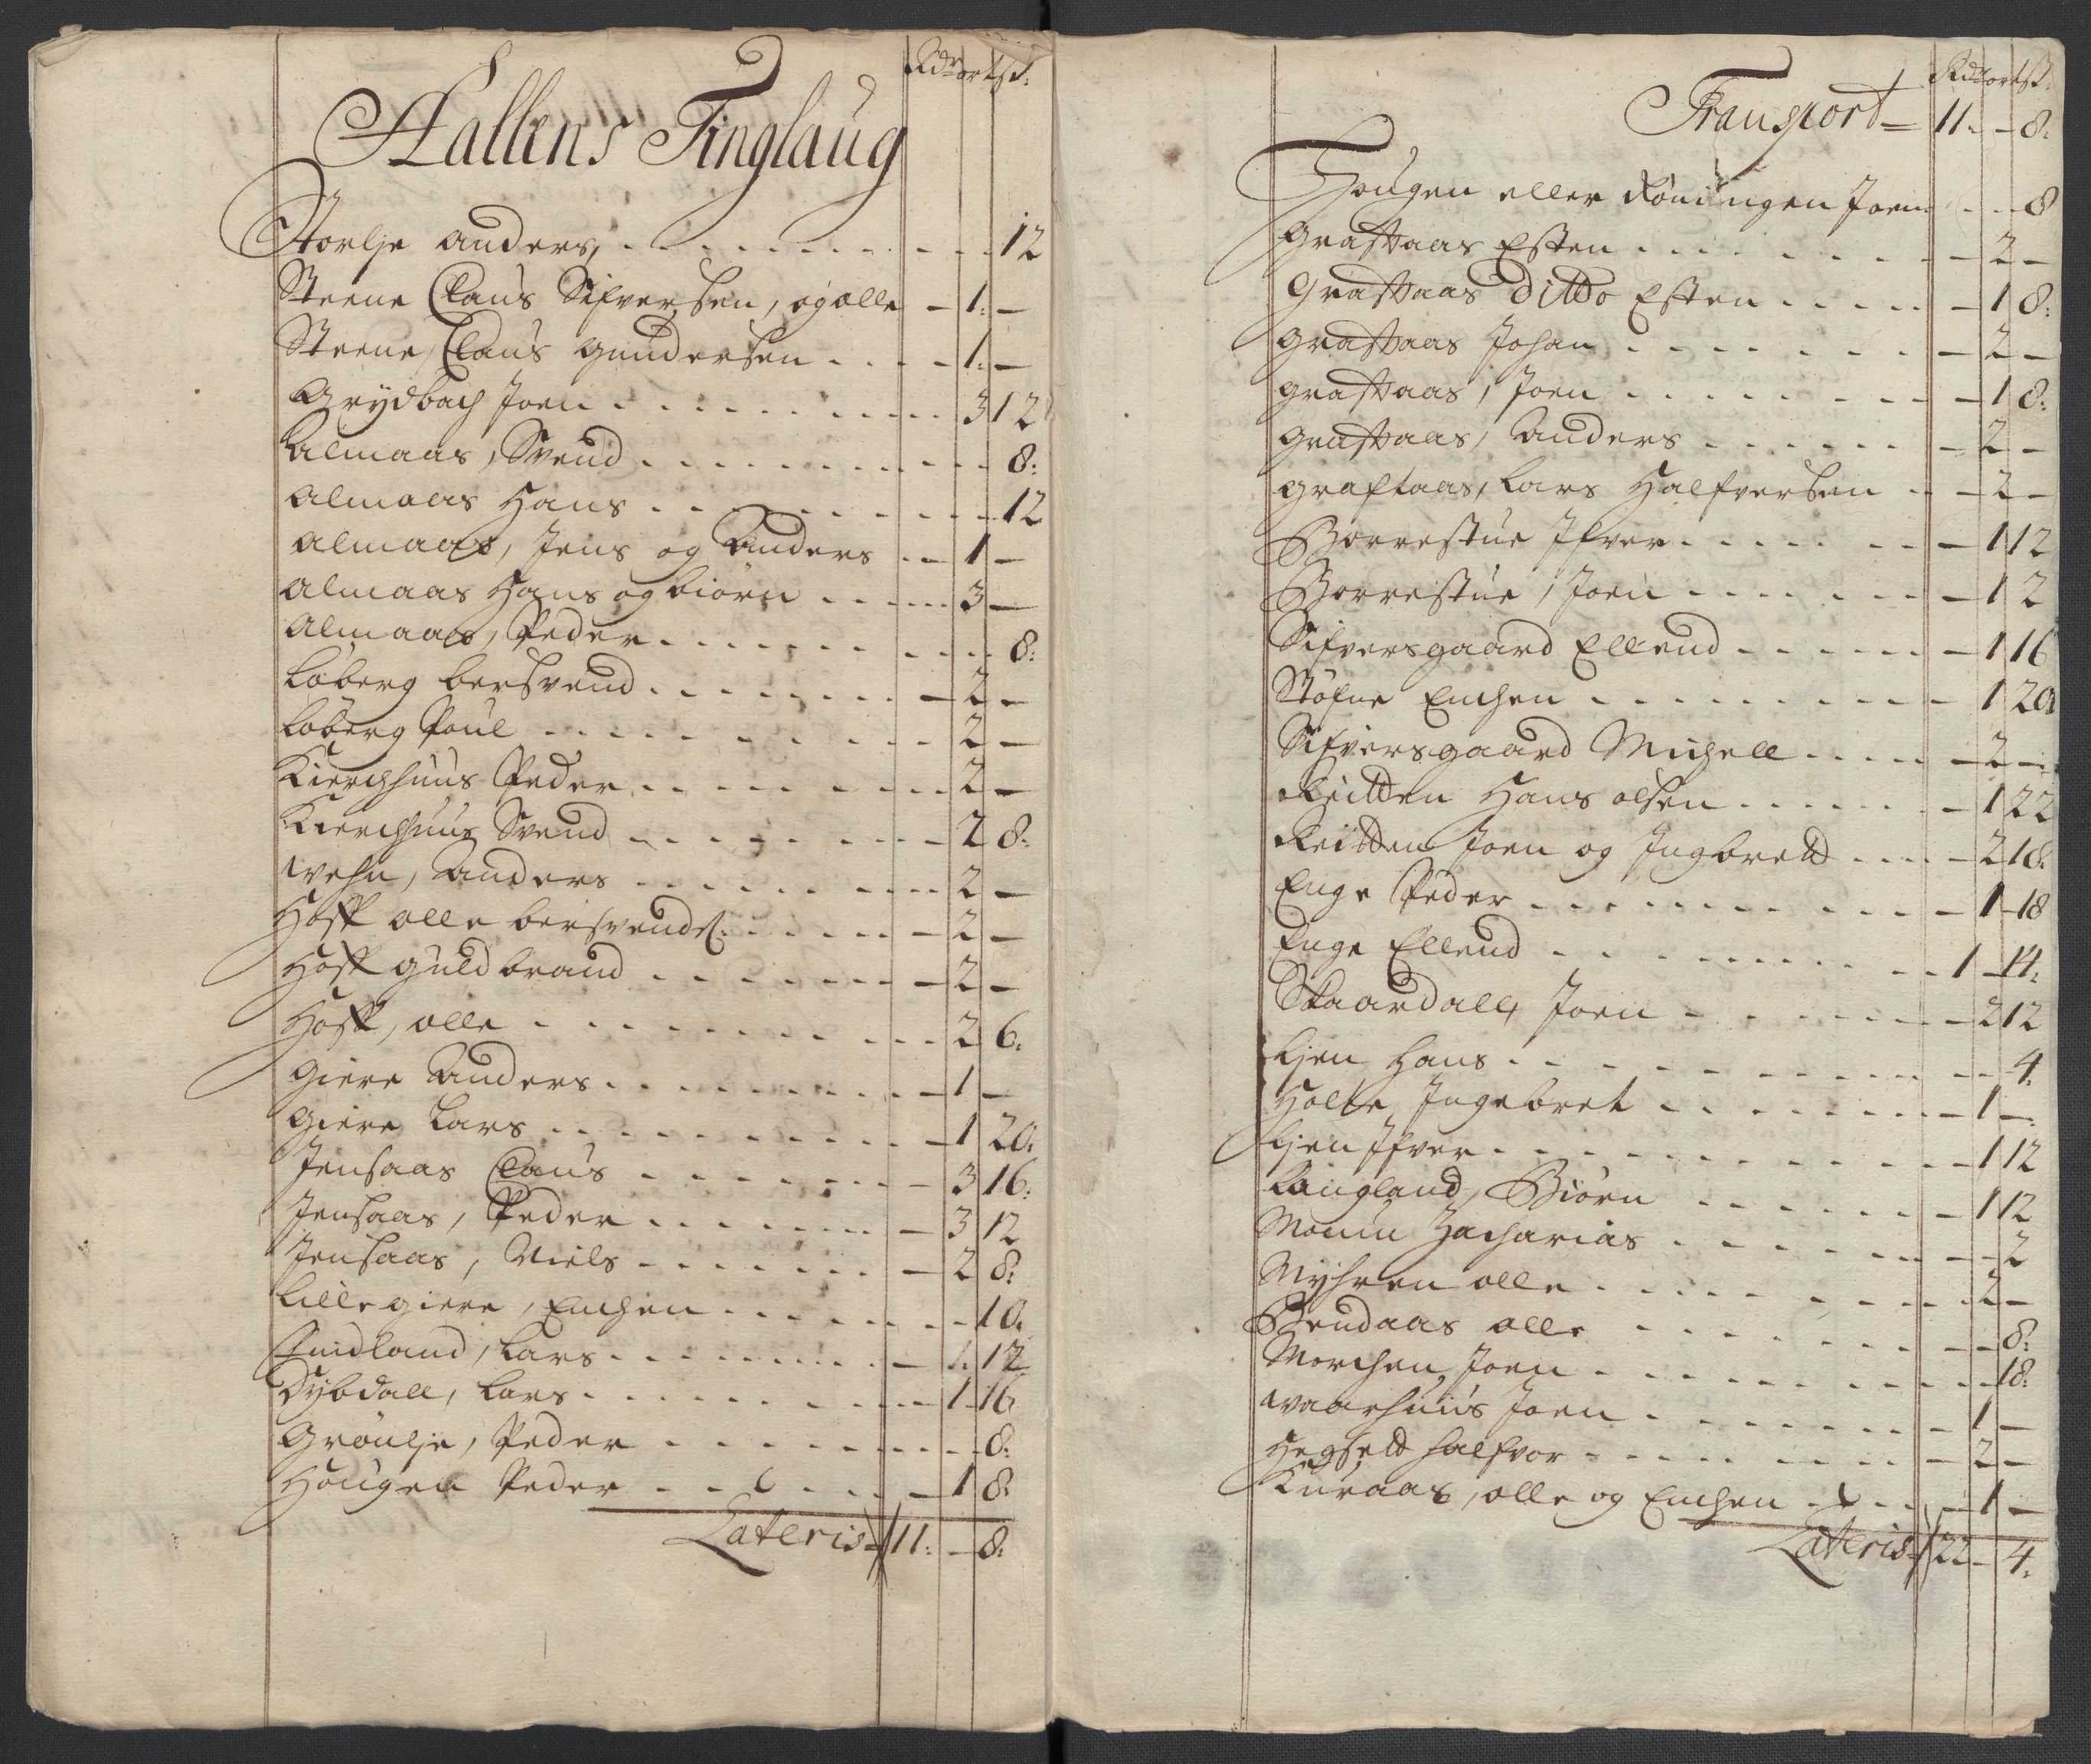 Rdr ort sk:
Hallens Tinglaug
Storlje anders, - - - 12
Steene Claus Sifversen, og olle - 1: -
Steene, Claus gundersen - 1: -
Grydbach Joen - 3 12
Almaas, Svend - 8:
Almaas Hans - 12
Almaas, Jens og Anders - 1 -
Almaas Hans og biörn - 3 -
Almaas, Peder - 8:
Löberg bersvend - 2 -
Löberg Poul - 2 -
Kierchhuus Peder - 2 -
Kierchhuus Svend - 2 8:
Wehn, Anders - 2 -
Hoff olle bersvends: - 2 -
Hoff guldbrand - 2 -
Hoff, olle - 2 6:
Giere Anders - 1 -
Giere Lars - 1 20:
Jensaas Claus - 3 16:
Jensaas, Peder - 3 12
Jensaas, Niels - 2 8:
Lillegiere, Enchen - 10:
Lars - 1: 12
Dybdall, Lars - 1 16
Grönlje, Peder - 8:
Hougen Peder - 1 8:
Lateris 11: - 8:
Rdr ort sk:
Transport = 11: - 8:
Hougen eller Röningen Joen - 8
Graftaas Esten - 2 -
Graftaas Ditto Esten - 1 8:
Graftaas Johan - 2 -
Graftaas, Joen - 1 8:
Graftaas, Anders - 2 -
Graftaas, Lars Halfversen - 2 -
Borrestue Ifver - 1 12
Borrestue, Joen - 1 2
Sifversgaard Ellend - 1 16
Stöfne Enchen - 1 20
Sifversgaard Michell - 2 -
Reitten Hans olsen - 1 22
Reitten Joen og Ingbrett - 2 18:
Enge Peder - 1 18
Enge Ellend - 1 - 14:
Skaardall, Joen - 2 12
Lien Hans - 4:
Holte, Ingebret - 1 -
Lien Ifver - 1 12
Langland, Biörn - 1 12
Moum Zacharias - 2
Myhren olle - 2 -
Bendaas olle - 8:
Morchen, Joen - 18:
Waarhuus Joen - 1 -
Hegsett halfvor - 2 -
Kuraas, olle og Enchen - 1 -
Lateris 22 - 4: